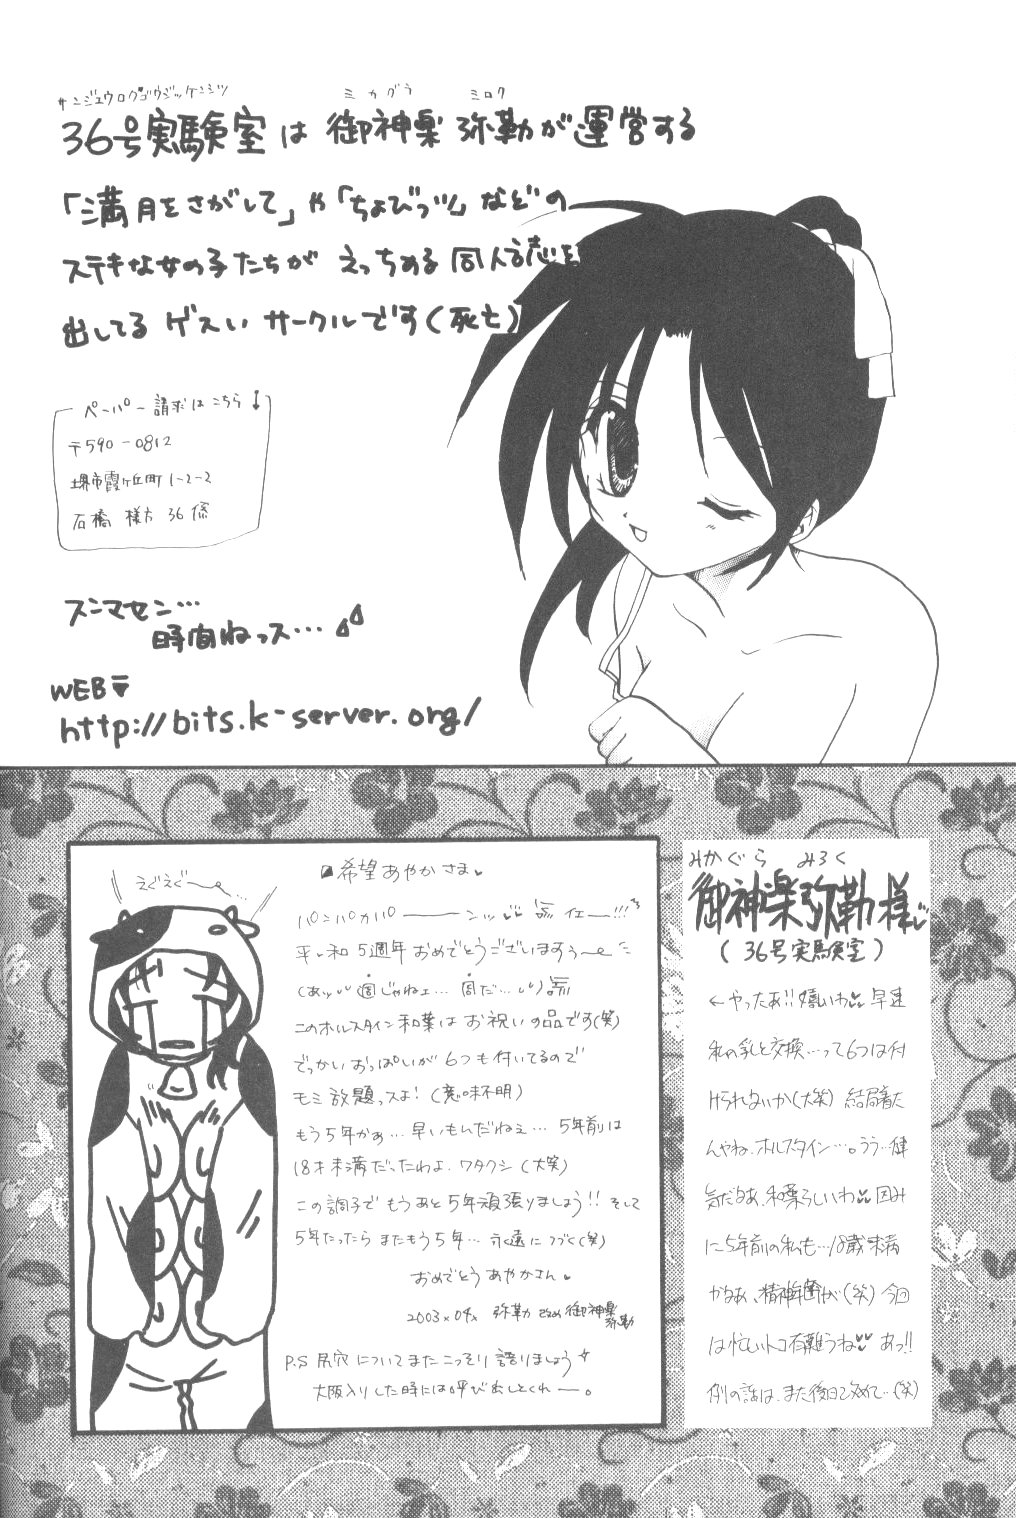 サンジュウロクゴウジッケンシツ
ミカグラ ミロク
36号実験室は 御神楽 弥勒が運営する
「満月をさがして」や「ちょびっツ」などの
ステキな女の子たちが えっちめる同人誌を
出してる ゲスい サークルです(死亡)
ペーパー請求はこちら↓
〒590-0812
堺市霞ヶ丘町1-2-2
石橋 様方 36係
スンマセン…
時間ねっス…
WEB
http://bits.k-server.org/
えぐえぐ〜…
希望あやかさま
パンパカパーーンッ イエー!!!
平和5週年おめでとうございますぅ〜
(あッ 週じゃねェ… 周だ…)
このホルスタイン和葉はお祝いの品です(笑)
でっかいおっぱいが6つも付いてるので
モミ放題っスよ!(意味不明)
もう5年かぁ… 早いもんだねぇ… 5年前は
18才未満だったわよ、ワタクシ(大笑)
この調子でもうあと5年頑張りましょう!!そして
5年たったらまたもう5年… 永遠につづく(笑)
おめでとうあやかさん
2003×04× 弥勒 改め御神楽弥勒
P.S 尻穴についてまたこっそり語りましょう
大阪入りした時には呼び出しとくれー。
みかぐら みろく
御神楽弥勒様
(36号実験室)
←やったあ!!嬉しいわ 早速
私の乳と交換…って6つは付
けられないか(大笑) 結局着た
んやね、ホルスタイン…。うう…健
気だなあ、和葉らしいわ 因み
に5年前の私も…18歳未満
かなあ、精神年齢が(笑) 今回
は忙しいトコ有難うね あっ!!
例の話は、また後日改めて…(笑)